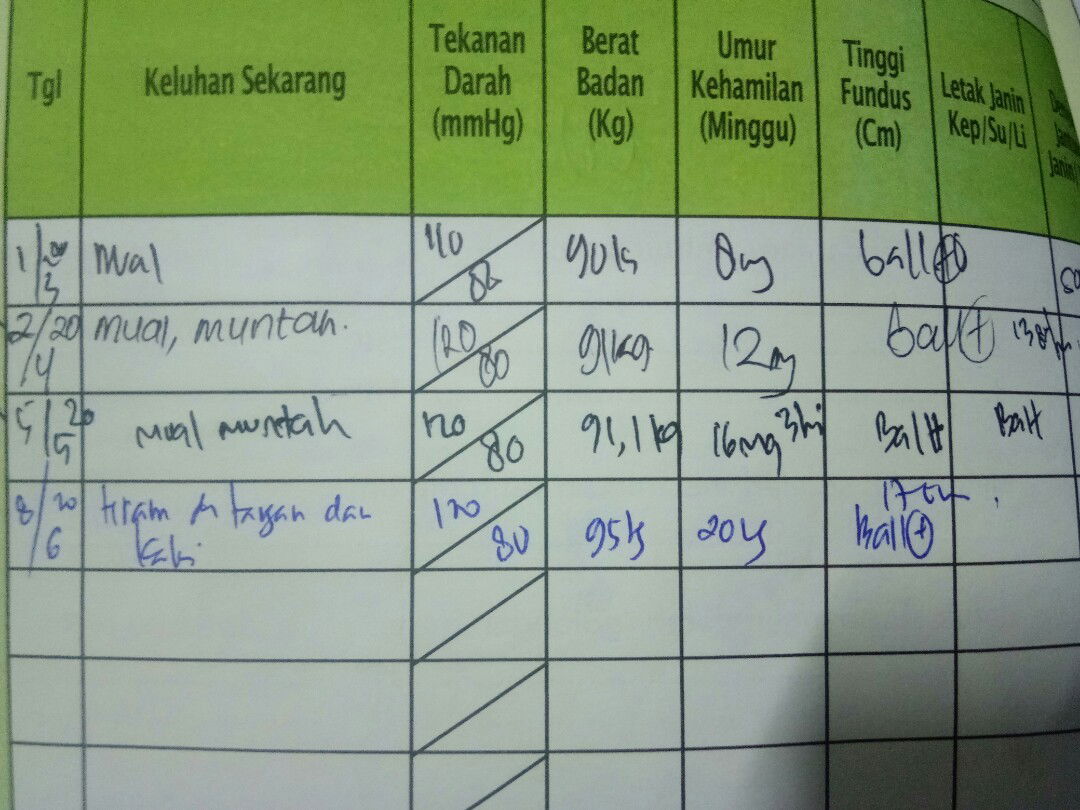 Tgl
Keluhan Sekarang
Tekanan
Darah
(mmHg)
Berat
Badan
(Kg)
Umur
Kehamilan
(Minggu)
Tinggi
Fundus
(Cm)
Letak Janin
Kep/Su/Li
Janin
1/3 Mual 110/ 90 kg 8 ball +
2/20/4 mual, muntah. 120/80 91 kg 12 ball + 138
5/20/5 mual muntah 120/80 91,1 kg 16 mg 3 hr Ball+ Ball
8/20/6 kram di tangan dan 120/80 95 20 17 cm
kaki Ball +